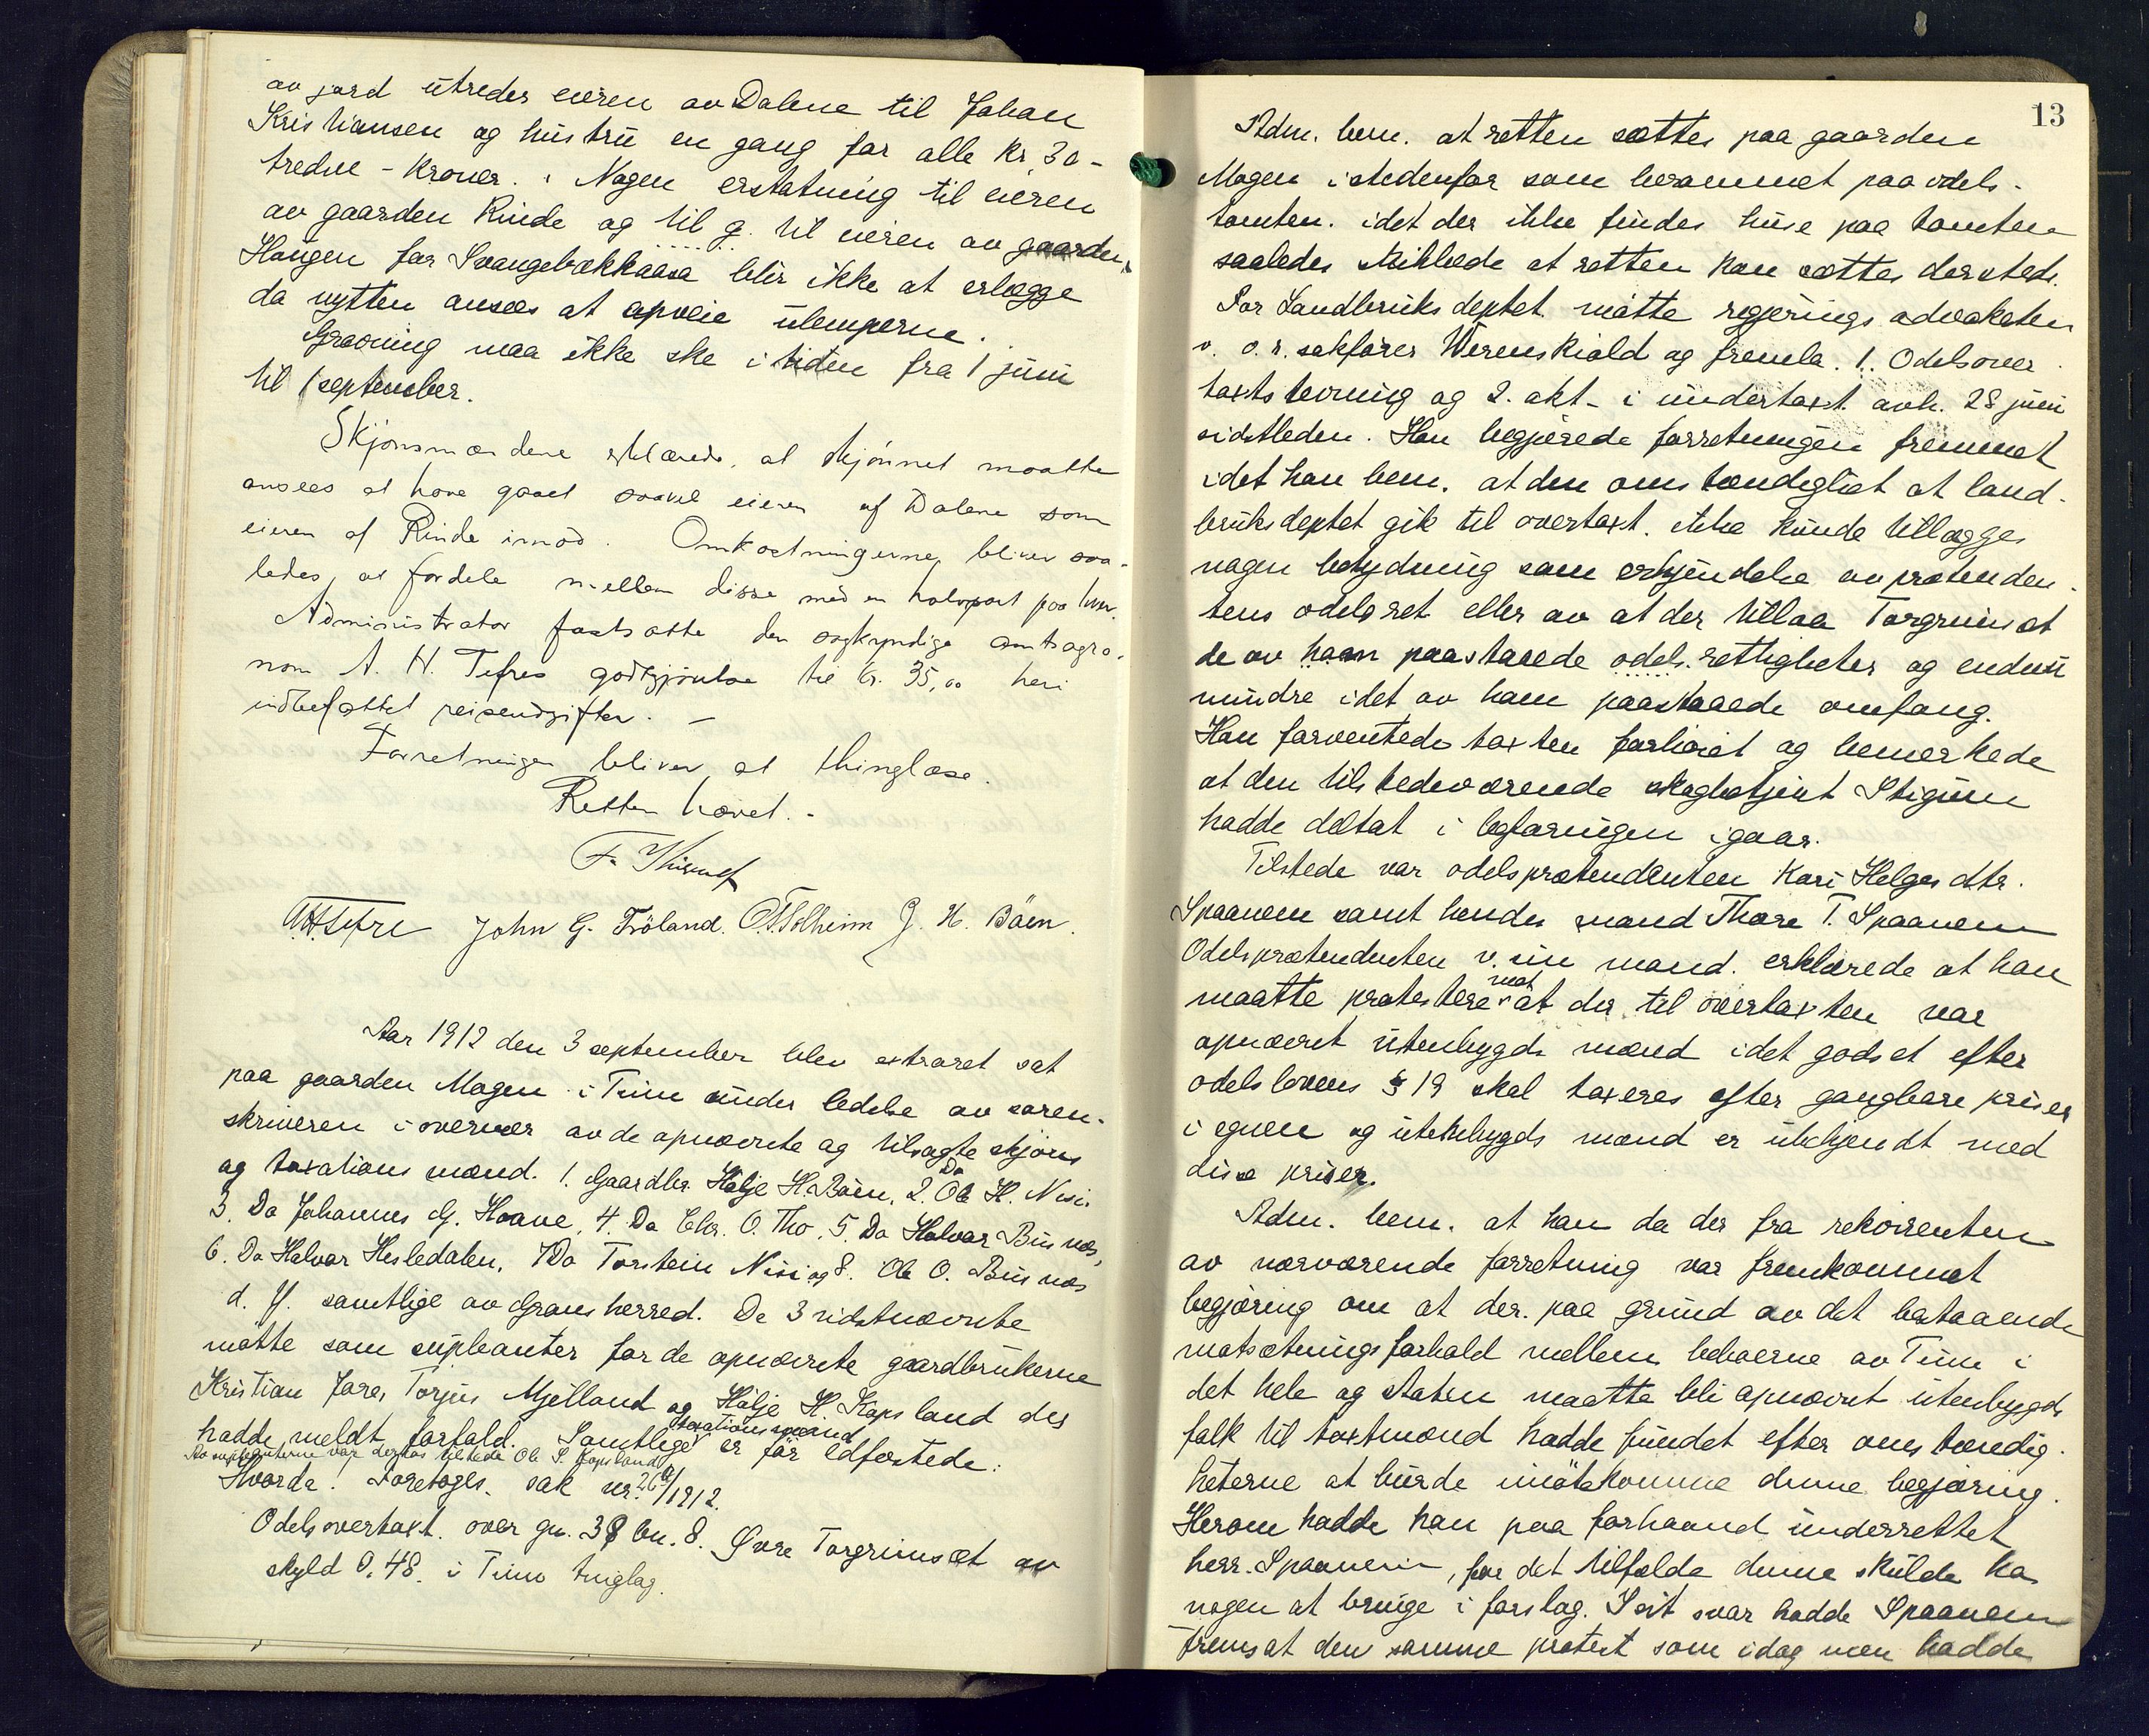 av jord utredes eieren av Dalene til Johan
Kristiansen og hustru en gang for alle kr 30 -
tredve - Kroner. Nogen erstatning til eieren
av gaarden Rinde og til g. til eieren av gaarden
Haugen for Svangebækkaasa blir ikke at erlægge
da nytten ansees at opveie ulemperne.
Gravning maa ikke ske i tiden fra 1 juni
til 1 september.
Skjønsmændene erklærede, at skjønnet maatte
ansees at have gaaet saavel eieren af Dalene som
eieren af Rinde imod. Omkostningerne bliver saa-
ledes at fordele mellem disse med en halvpart paa hver.
Administrator fastsatte den sagkyndige amtsagro-
nom A. H. Tefres godtgjørelse til kr. 35,00 heri
indbefattet reiseudgifter. -
Forretningen bliver at thinglæse.
Retten hævet. -
F.
AHTefre John G. Fröland. O.T.Solheim J. H. Böen.
Aar 1912 den 3 september blev extraret sat
paa gaarden Mogen i Tinn under ledelse av soren-
skriveren i overvær av de opnævnte og tilsagte skjøns
og taxations mænd. 1. Gaardbr Hølje H. Bøen, 2. Do Ole H. Nisi.
3. Do Johannes G. Hoave, 4. Do Chr. O. Tho, 5. Do Halvor Busnæs,
6. Do Halvor Hesledalen, 7 Do Torstein Nisi og 8. Ole O. Busnæs
d. y. samtlige av Grans herred. De 3 sidstnævnte
møtte som supleanter for de opnævnte gaardbrukerne
Kristian Jore, Torjus Mjelland og Hølje H. Kapsland der
hadde meldt forfald. Samtlige taxationsmænd er før edfæstede:
Av supleanterne var derhos tilstede Ole S. Kapsland
Hvorda! Foretoges sak nr. 26 a/1912.
Odelsovertaxt over gn. 38 bn. 8. Øvre Torgrimsæt av
skyld 0,48. i Tinn tinglag.
13
Adm. bem. at retten sættes paa gaarden
Mogen istedenfor som berammet paa odels-
tomten. idet der ikke findes huse paa tomten
saaledes skikkede at retten kan sættes dersteds.
For Landbruksdeptet møtte regjeringsadvokaten
v. o. r. sakfører Werenskiold og fremla. 1. Odelsover
taxtstevning og 2. akt i undertaxt avh. 28 juni
sidstleden. Han begjærede forretningen fremmet
idet han bem. at den omstændighet at land-
bruksdeptet gik til overtaxt. ikke kunde tillægges
nogen betydning som erkjendelse av prætenden-
tens odelsret eller av at der tillaa Torgrimsæt
de av ham paastaaede odels.rettigheter og endnu
mindre idet av ham paastaaede omfang.
Han forventede taxten forhøiet og bemerkede
at den tilstedeværende skogbetjent Stigum
hadde deltat i befaringen igaar.
Tilstede var odelsprætendenten Kari Helges dtr.
Spaanem samt hendes mand Thore T. Spaanem
Odelsprætendenten v. sin mand. erklærede at han
maatte protestere mot at der til overtaxten var
opnævnt utenbygds mænd idet godset efter
odelslovens § 19 skal taxeres efter gangbare priser
i egnen og utenbygds mænd er ubekjendt med
disse priser.
Adm. bem. at han da der fra rekvirenten
av nærværende forretning var fremkommet
begjæring om at der. paa grund av det bestaaende
motsætningsforhold mellem beboerne av Tinn i
det hele og Staten maatte bli opnævnt utenbygds
folk til taxtmænd hadde fundet efter omstændig-
heterne at burde imøtekomme denne begjæring.
Herom hadde han paa forhaand underrettet
herr. Spaanem, for det tilfælde denne skulde ha
nogen at bringe i forslag. I sit svar hadde Spaanem
fremsat den samme protest som idag men hadde